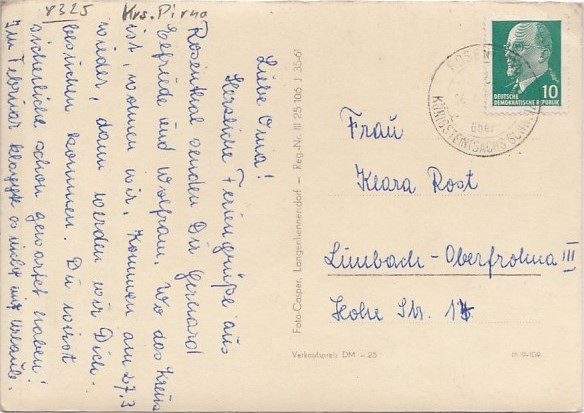 v325 Krs. Pirna
Liebe Oma!
Herzliche Feriengrüße aus
Rosenthal senden Dir Gerhard
Elfriede und Wolfram. Wo das Kreuz
ist, wohnen wir. Kommen am 27.3
wieder, dann werden wir Dich
besuchen kommen. Du wirst
sicherlich schon gewartet haben!
Im Februar klappte es nicht mit Urlaub.
Foto-Casper, Langenhennersdorf - Reg.-Nr. III 25 106 J 35-61
DEUTSCHE
DEMOKRATISCHE REPUBLIK
10
über
KÖNIGSTEIN (SÄCHS. SCHWEIZ)
Frau
Klara Rost
Limbach-Oberfrohna III
Hohe Str. 14
Verkaufspreis DM -25